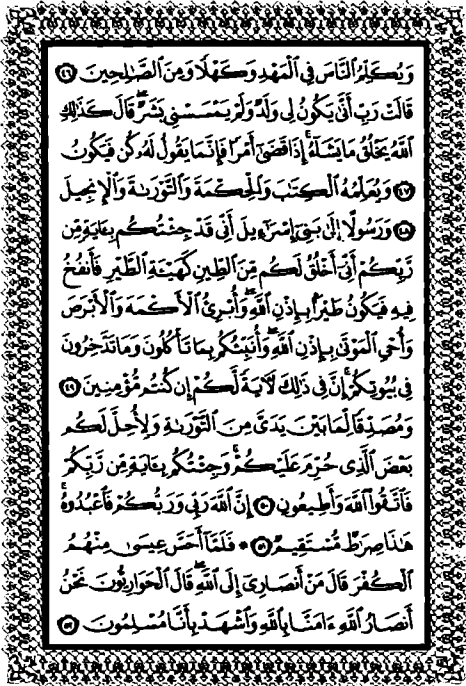 وَيُكَلِّمُ ٱلنَّاسَ فِي ٱلْمَهْدِ وَكَهْلًا وَمِنَ ٱلصَّٰلِحِينَ ٤٦
قَالَتْ رَبِّ أَنَّىٰ يَكُونُ لِي وَلَدٌ وَلَمْ يَمْسَسْنِي بَشَرٌ ۖ قَالَ كَذَٰلِكِ
ٱللَّهُ يَخْلُقُ مَا يَشَآءُ ۚ إِذَا قَضَىٰٓ أَمْرًا فَإِنَّمَا يَقُولُ لَهُۥ كُن فَيَكُونُ
٤٧ وَيُعَلِّمُهُ ٱلْكِتَٰبَ وَٱلْحِكْمَةَ وَٱلتَّوْرَىٰةَ وَٱلْإِنجِيلَ
٤٨ وَرَسُولًا إِلَىٰ بَنِيٓ إِسْرَٰٓءِيلَ أَنِّي قَدْ جِئْتُكُم بِـَٔايَةٍ مِّن
رَّبِّكُمْ ۖ أَنِّيٓ أَخْلُقُ لَكُم مِّنَ ٱلطِّينِ كَهَيْـَٔةِ ٱلطَّيْرِ فَأَنفُخُ
فِيهِ فَيَكُونُ طَيْرًۢا بِإِذْنِ ٱللَّهِ ۖ وَأُبْرِئُ ٱلْأَكْمَهَ وَٱلْأَبْرَصَ
وَأُحْيِ ٱلْمَوْتَىٰ بِإِذْنِ ٱللَّهِ ۖ وَأُنَبِّئُكُم بِمَا تَأْكُلُونَ وَمَا تَدَّخِرُونَ
فِي بُيُوتِكُمْ ۚ إِنَّ فِي ذَٰلِكَ لَـَٔايَةً لَّكُمْ إِن كُنتُم مُّؤْمِنِينَ ٤٩
وَمُصَدِّقًا لِّمَا بَيْنَ يَدَيَّ مِنَ ٱلتَّوْرَىٰةِ وَلِأُحِلَّ لَكُم
بَعْضَ ٱلَّذِي حُرِّمَ عَلَيْكُمْ ۚ وَجِئْتُكُم بِـَٔايَةٍ مِّن رَّبِّكُمْ
فَٱتَّقُوا۟ ٱللَّهَ وَأَطِيعُونِ ٥٠ إِنَّ ٱللَّهَ رَبِّي وَرَبُّكُمْ فَٱعْبُدُوهُ ۗ
هَٰذَا صِرَٰطٌ مُّسْتَقِيمٌ ٥١ ۞ فَلَمَّآ أَحَسَّ عِيسَىٰ مِنْهُمُ
ٱلْكُفْرَ قَالَ مَنْ أَنصَارِيٓ إِلَى ٱللَّهِ ۖ قَالَ ٱلْحَوَارِيُّونَ نَحْنُ
أَنصَارُ ٱللَّهِ ءَامَنَّا بِٱللَّهِ وَٱشْهَدْ بِأَنَّا مُسْلِمُونَ ٥٢